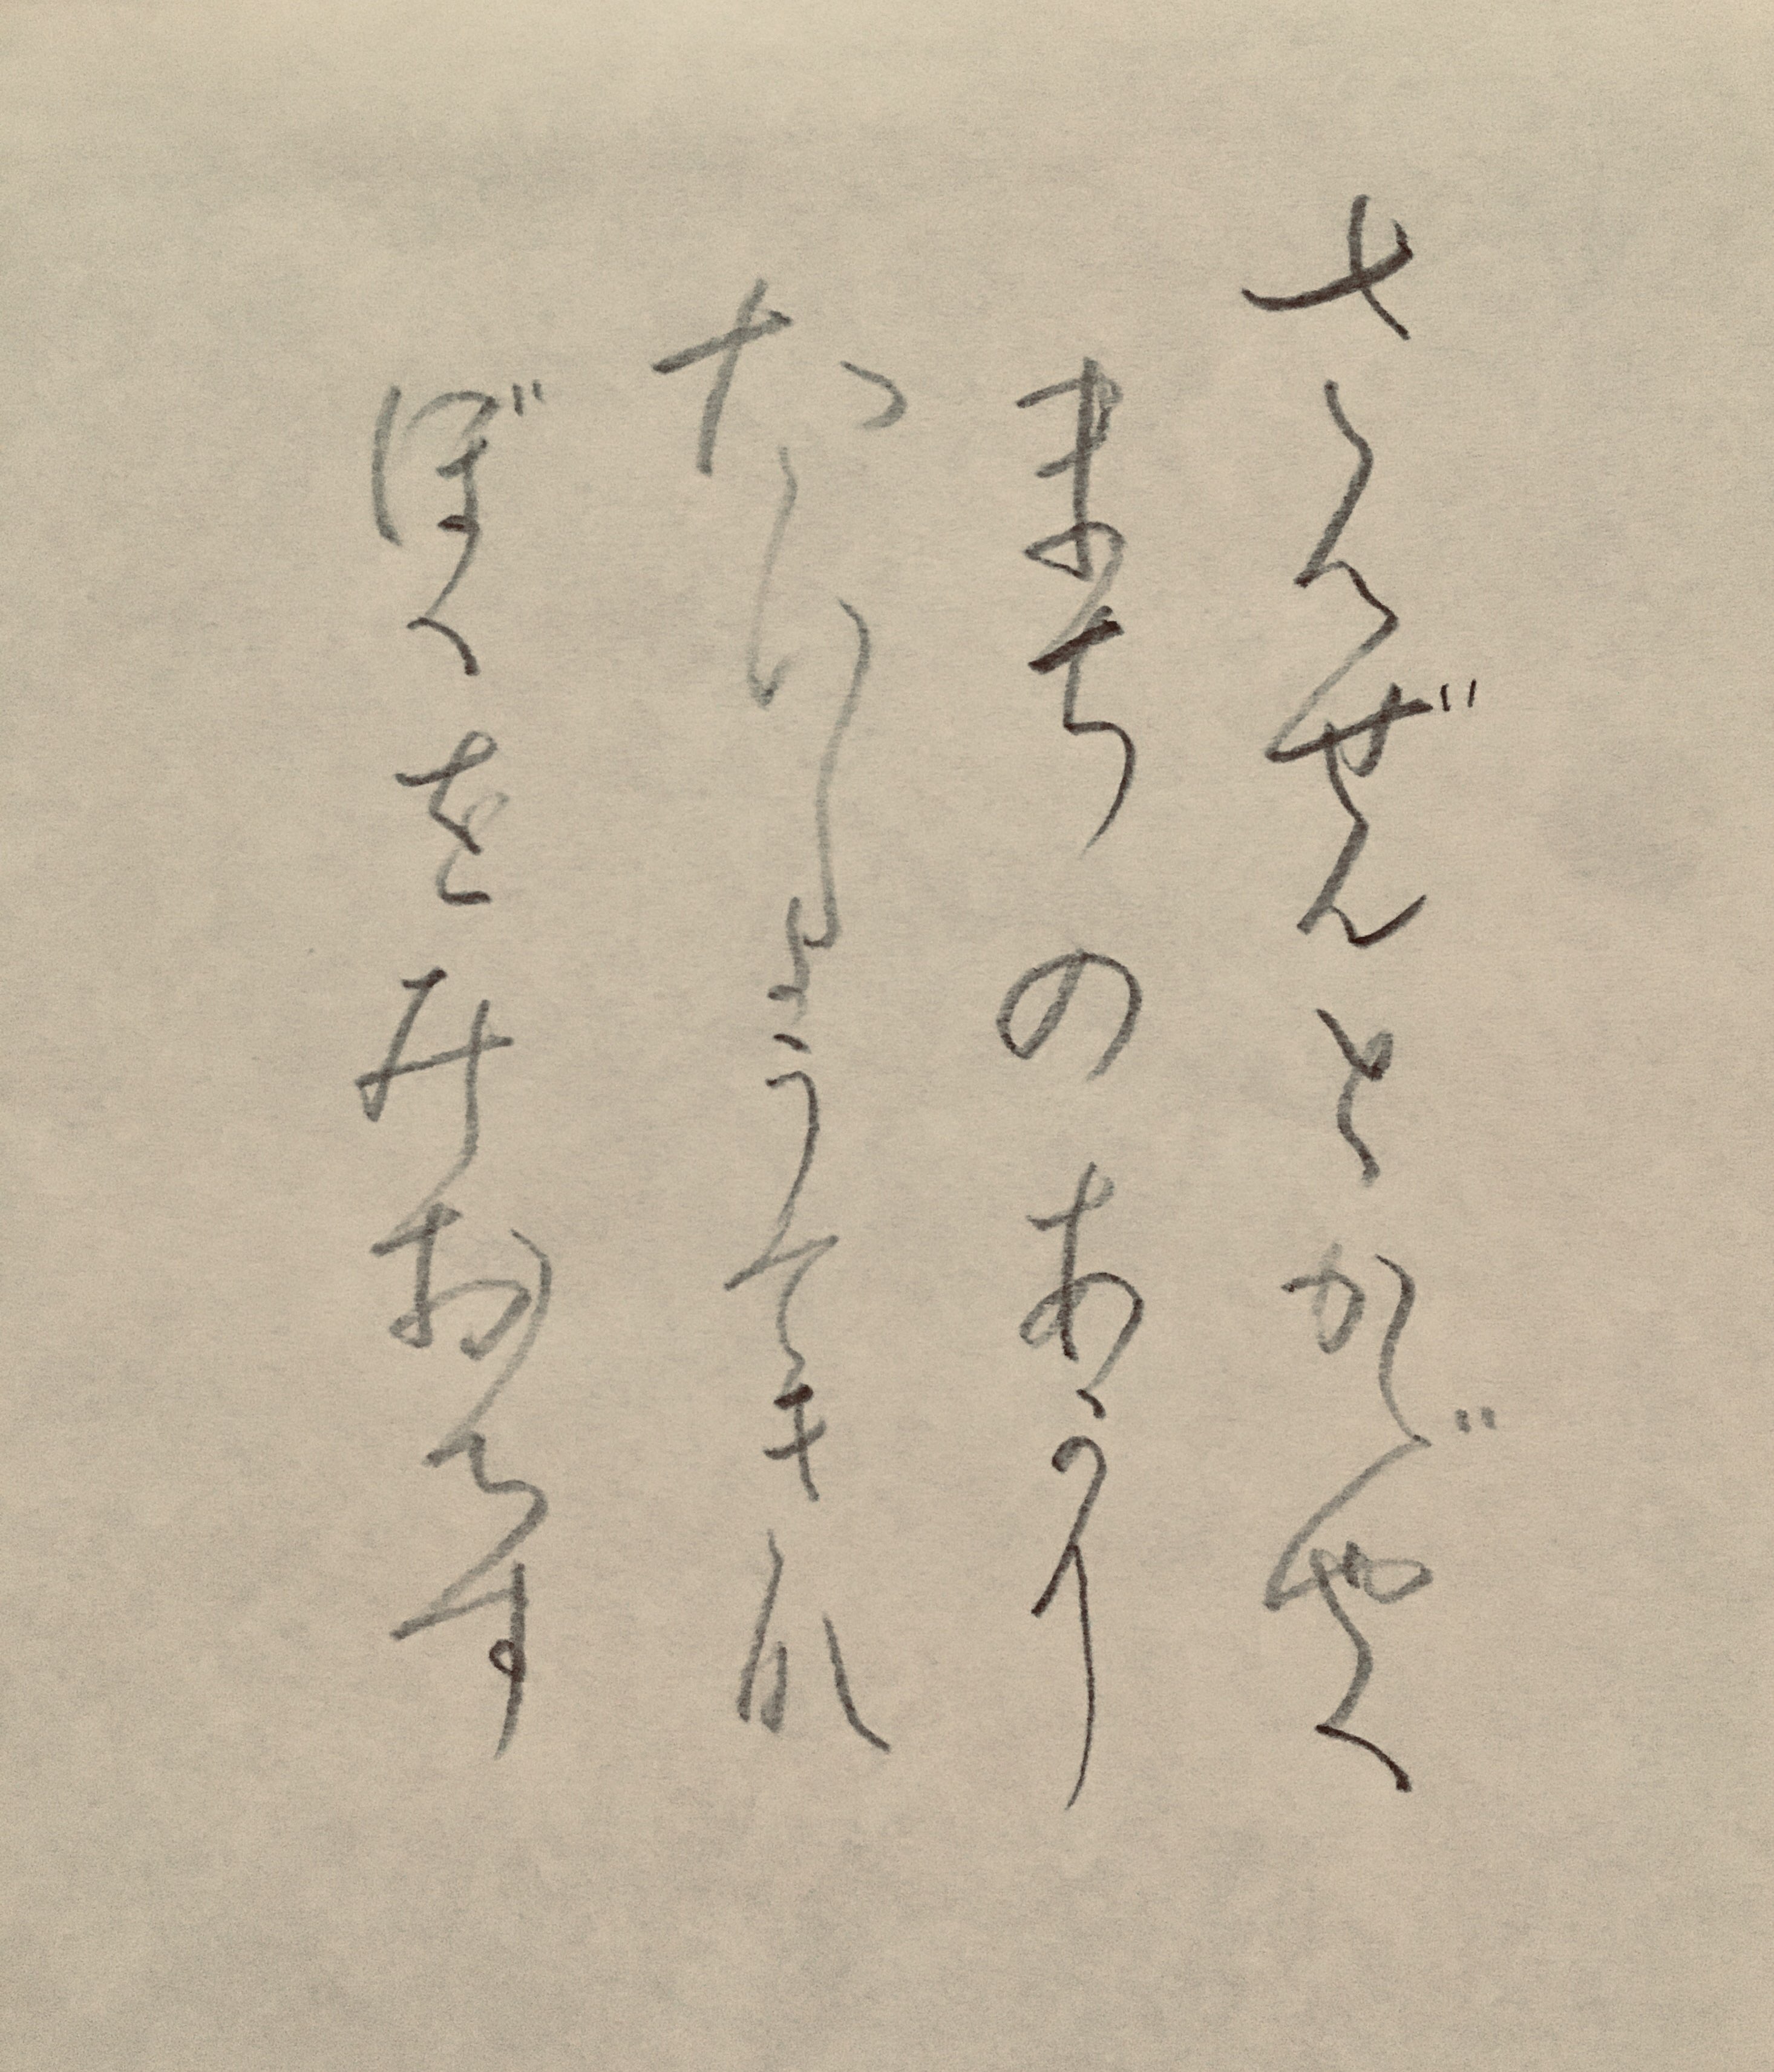 さんぜんとかがやく
まちのあかり
たいしょうてきに
ぼくをみおろす